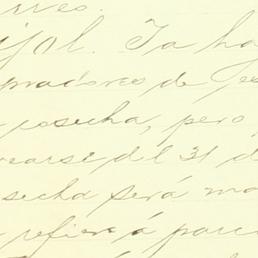 rres.
ijol. Ya ha
pradores de
cosecha, pero
carse del 31 d
secha será ma
refiere á par